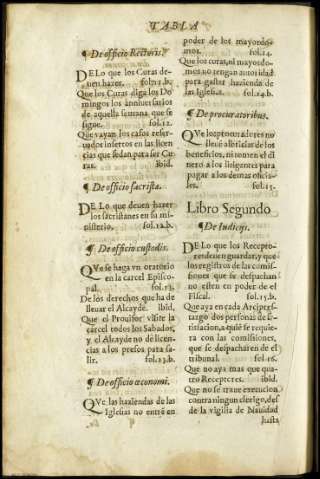 TABLA
¶ De officio Rectoris.
DE Lo que los Curas deuen
hazer. fol.11.b.
Que los Curas digã los Domingos
los anniuersarios
de aquella semana que se
sigue. fol.12.
Que vayan los casos reseruados
insertos en las licencias
que se dan para ser Curas.
ibid.
¶ De officio sacristæ.
DE Lo que deuen hazer
los sacristanes en su ministerio.
fol.12.b.
¶ De officio custodis.
QVe se haga vn oratorio
en la carcel Episcopal.
fol.13.
De los derechos que ha de
lleuar el Alcayde. ibid.
Que el Prouisor visite la
carcel todos los Sabados,
y el Alcayde no dé licencias
a los presos para salir.
fol.13.b.
¶ De officio œconomi.
QVe las haziendas de las
Iglesias no entrẽ en
poder de los mayordomos.
fol.14.
Que los curas, ni mayordomos
no tengan autoridad
para gastar hazienda de
las Iglesias. fol.14.b.
¶ De procuratoribus.
QVe los procuradores no
lleuẽ albricias de los
beneficios, ni tomen el dinero
a los litigantes para
pagar a los demas oficiales.
fol.15.
Libro Segundo
¶ De Iudicijs.
DE Lo que los Receptores
deuen guardar, y que
los registros de las comissiones
que se despachan
no esten en poder de el
Fiscal. fol.15.b.
Que aya en cada Arciprestazgo
dos personas de satisfacion,
a quiẽ se requiera
con las comissiones,
que se despacharen de el
tribunal. fol.16.
Que no aya mas que quatro
Receptores. ibid.
Que no se traue execucion
contra ningun clerigo, desde
la vigilia de Nauidad
hasta